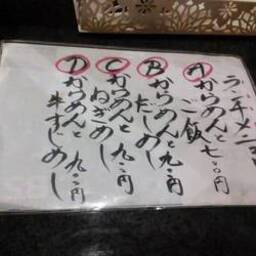 ランチメニュー
A からめんと 七〇〇円
ご飯
B からめんと 九〇円
だしめし
C からめんと 九〇円
ねぎめし
D からめんと 九〇円
牛すじめし